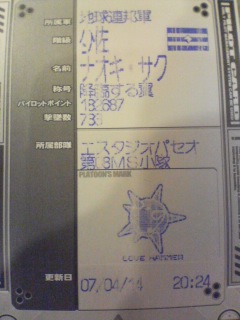 所属軍 地球連邦軍
階級 少佐
名前 ナオキ・サク
称号 降臨する翼
パイロットポイント 182687
撃墜数 733
所属部隊 エスタジオパセオ
第08MS小隊
PLATOON'S MARK
LOVE HAMMER
更新日 07/04/14 20:24